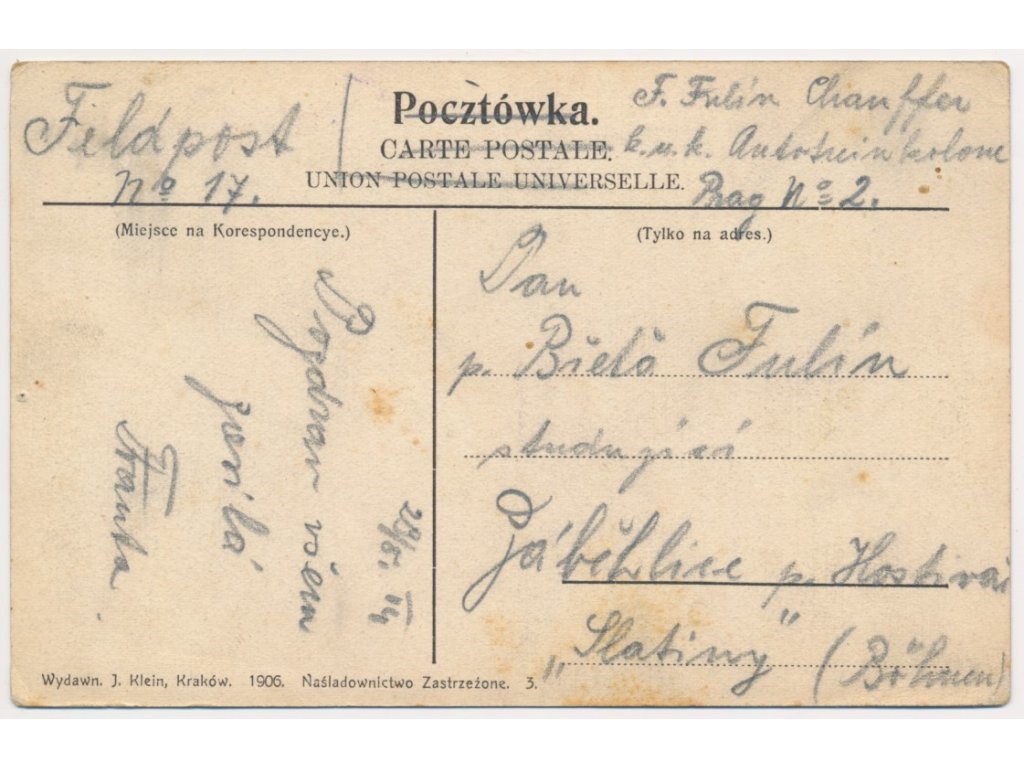 Feldpost
No 17.
Pocztówka.
CARTE POSTALE.
UNION POSTALE UNIVERSELLE.
F. Fulín Chauffer
k. u. k. Autosteinkolone
Prag No 2.
(Miejsce na Korespondencye.)
(Tylko na adres.)
29/8. 14
Pozdrav všem
posílá
Franta
Pan
p. Břeťa Fulín
studující
Záběhlice p. Hostivař
„Slatiny" (Böhmen)
Wydawn. J. Klein, Kraków. 1906. Naśladownictwo Zastrzeżone. 3.